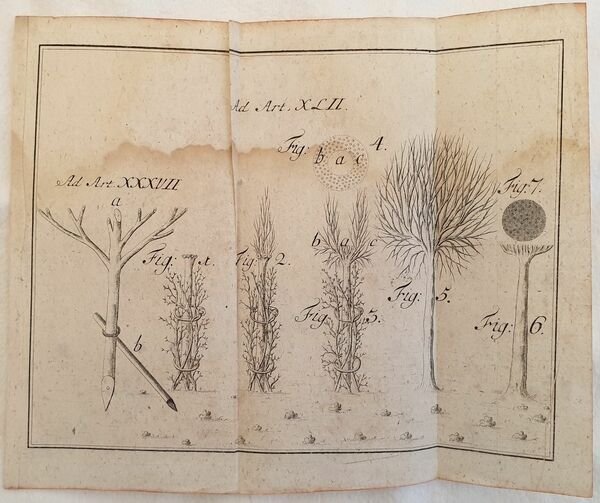 Ad Art. XLII.
Fig: 4.
b a c
Ad Art. XXXVII
a
b
Fig: 1.
Fig: 2.
b a c
Fig: 3.
Fig: 5.
Fig: 7.
Fig: 6.